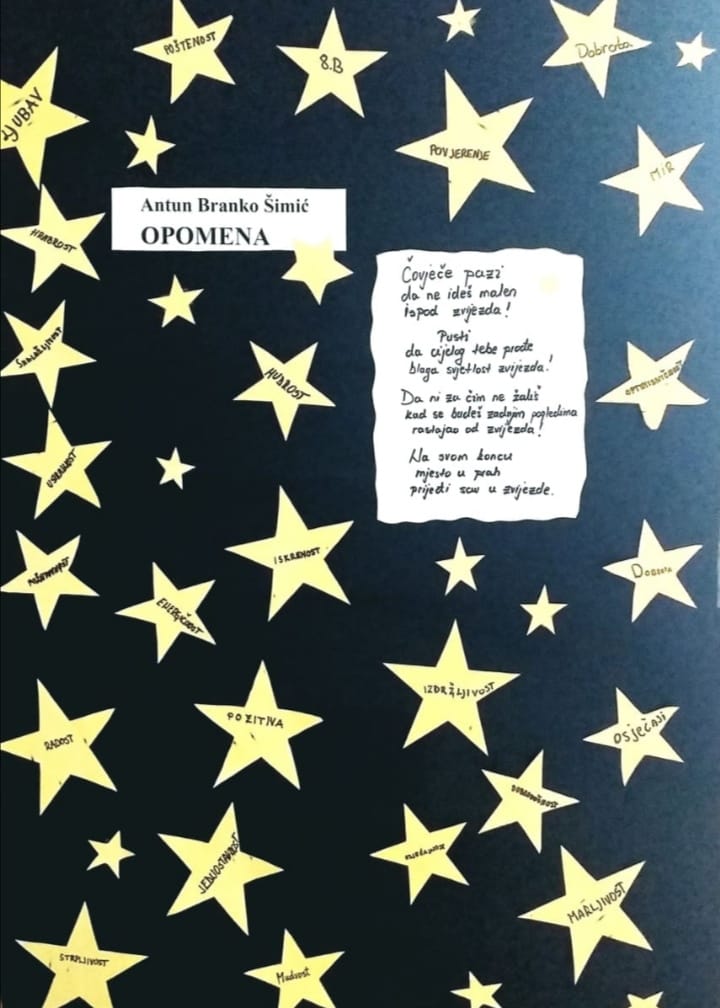 POŠTENOST
8.B
Dobrota
LJUBAV
POVJERENJE
MIR
HRABROST
Antun Branko Šimić
OPOMENA
Čovječe pazi
da ne ideš malen
ispod zvijezda!
Pusti
da cijelog tebe prođe
blaga svjetlost zvijezda!
Da ni za čim ne žališ
kad se budeš zadnjim pogledima
rastajao od zvijezda!
Na svom koncu
mjesto u prah
prijeđi sav u zvijezde.
MUDROST
ISKRENOST
DOBROTA
IZDRŽLJIVOST
POZITIVA
OSJEĆAJI
RADOST
JEDNOSTAVNOST
MARLJIVOST
STRPLJIVOST
Mudrost